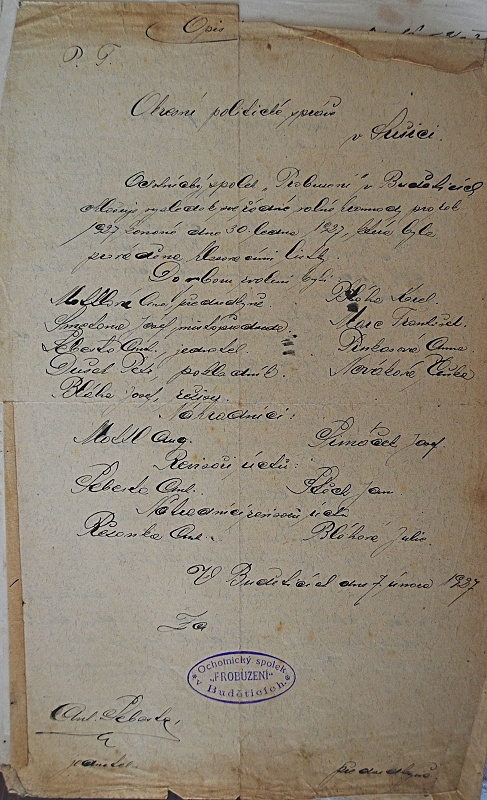 Opis
P. T.
Okresní politické správě
v Sušici.
Ochotnický spolek „Probuzení" v Budětících
výsledek řádné valné hromady pro rok
1937 konané dne 30. ledna 1937, která byla
provedena
Do výboru zvoleni byli:
Mottlová předsedkyně. Bláha Karel.
Smetana Josef, místopředseda. František.
Šebesta Ant., jednatel. Pinkasová Anna
Dušek Petr, pokladník. Nováková
Bláha Josef, režisér.
Náhradníci:
Mottl Aug. Šimáček Josef.
Revisoři účtů:
Šebesta Ant. Jan.
Náhradníci revisorů účtů
Řezanka Ant. Bláhová Julie.
V Budětících dne 7. února 1937
Za
Ochotnický spolek
„PROBUZENÍ"
v Buděticích.
Ant. Šebesta,
jednatel. předsedkyně.